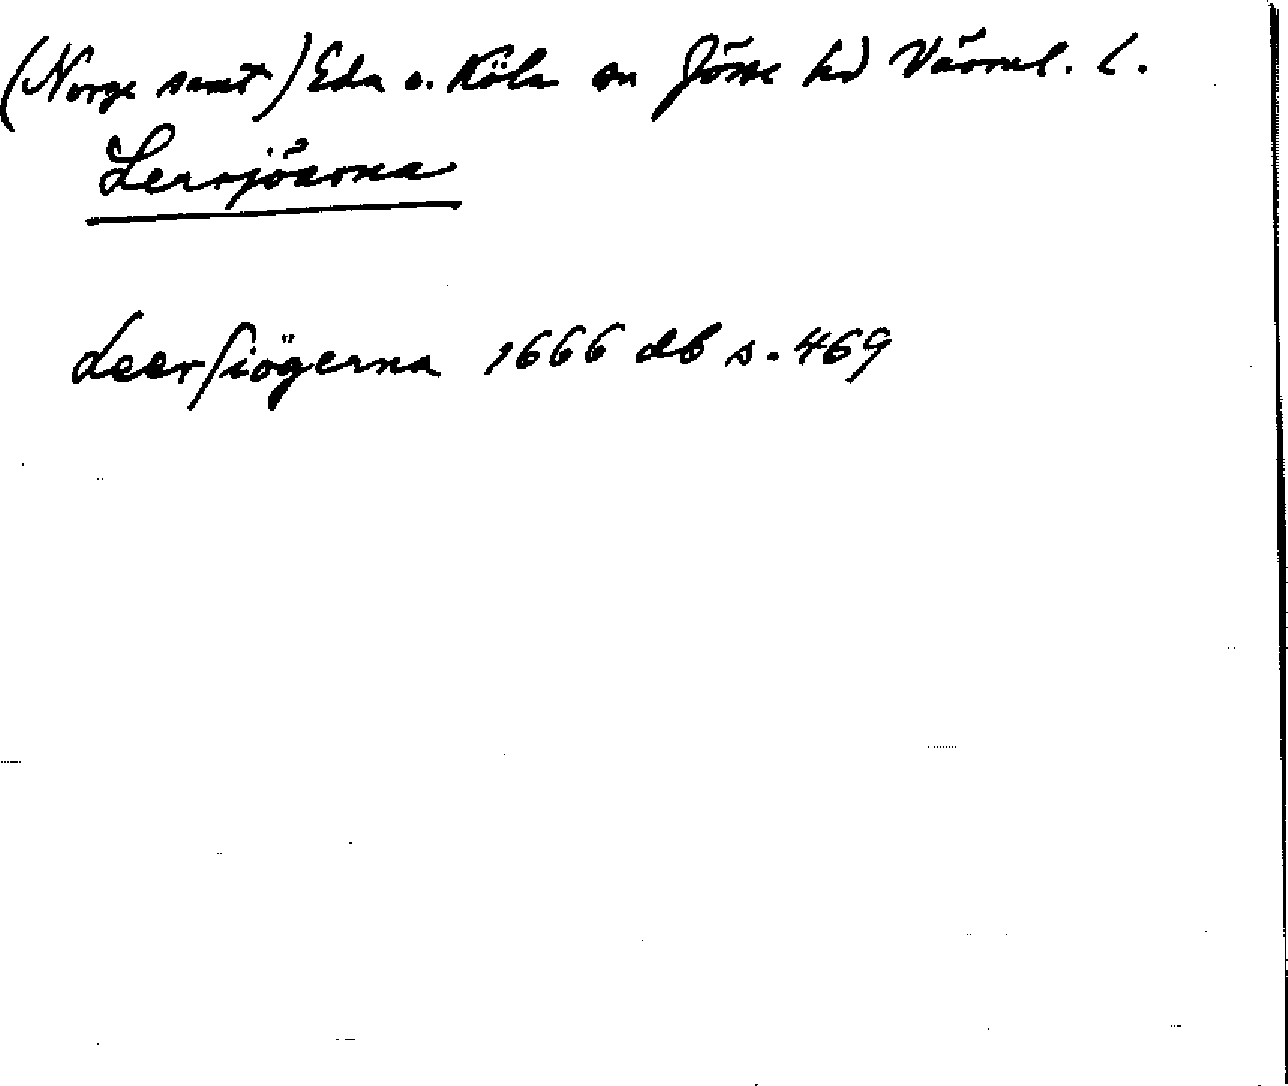 (Norge samt) Eda o. Köla sn Jösse hd Värml. l.
Lersjöarna
Leersiögerna 1666 db s. 469